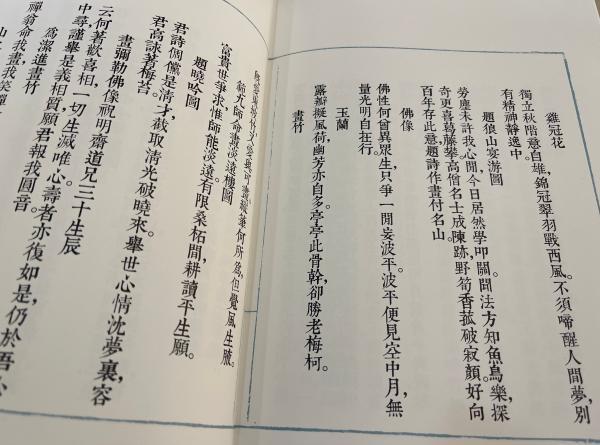 雞冠花
獨立秋階意自雄，錦冠翠羽戰西風。不須啼醒人間夢，別
有精神靜逸中。
題狼山宴游圖
勞塵未許我心閒，今日居然學叩關。問法方知魚鳥樂，探
奇更喜葛藤攀。高僧名士成陳跡，野筍香菰破寂顏。好向
百年存此意，題詩作畫付名山。
佛像
佛性何曾異眾生，只爭一開妄波平。波平便見空中月，無
量光明自在行。
玉蘭
露瓣擬風荷，幽芳亦自多。亭亭此骨幹，卻勝老梅柯。
畫竹
何所為，但覺風生腋。
師命畫淡遠樓圖
富貴世爭求，惟師能淡遠。有限桑柘間，耕讀平生願。
題曉吟圖
君詩倜儻是清才，截取清光破曉來。舉世心情沈夢裏，容
君高詠著梅苔。
畫彌勒佛像祝明齋道兄三十生辰
云何著歡喜相，一切生滅唯心。壽者亦復如是，仍於吾心
中尋。謹舉是義相質，願君報我圓音。
為潔進畫竹
禪翁命我畫，我笑禪